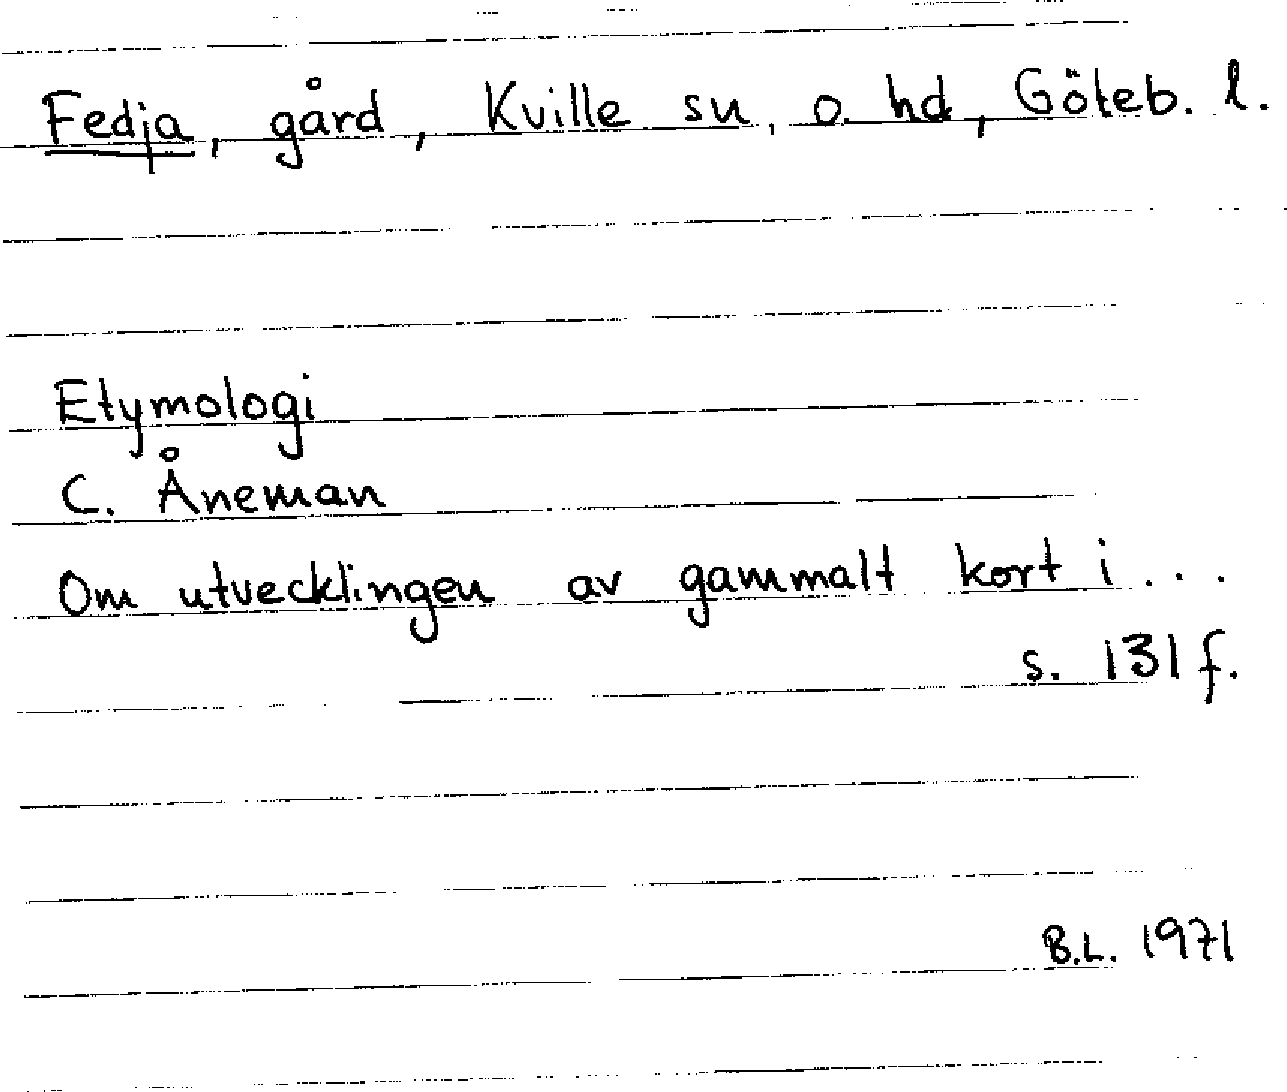 Fedja, gård, Kville sn, o. hd, Göteb. l.
Etymologi
C. Åneman
Om utvecklingen av gammalt kort i...
s. 131 f.
B.L. 1971